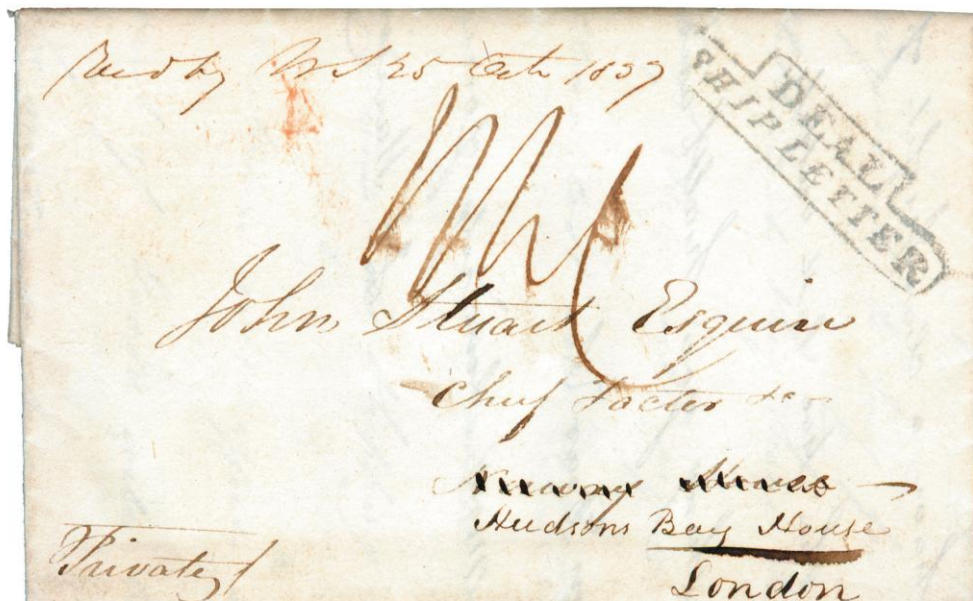 Recd by WS 25 Octr 1837
DEAL
SHIP LETTER
John Stuart Esquire
Chief Factor &c
Norway House
Hudsons Bay House
London
Private